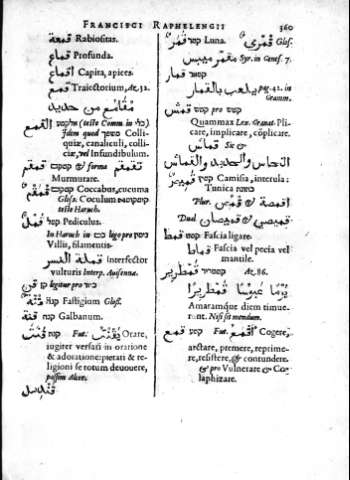 FRANCISCI RAPHELENGII 360
قمعة Rabiositas.
قمعا Profunda.
اقماع Capita, apices.
قمع Traiectorium, Ac. 12.
مقامع من حديد
القمع (teste Comm. in כלי)
Idem quod משפך Colli-
quiæ, canaliculi, colli-
ciæ, vel Infundibulum.
قمقم & forma تقمقم
Murmurare.
قمقم Coccabus, cucuma
Glos. Coculum
teste Haruch.
قمل קמל Pediculus.
In Haruch in לigo pro
Villis, filamentis.
قملة النسر Interfector
vulturis Interp. Auisenna.
قن ligatur pro
قنة Fastigium Glos.
قنة קנה Galbanum.
قنت קנת Fut. يقنت Orare,
iugiter versari in oratione
& adoratione: pietati & re-
ligioni se totum deuouere,
passim Alcor.
قنديل
قمري קמר Luna. قمري Glos.
مقمر Syr. in Genes. 7.
قمار קמר
يلعب بالقمار pag. 42. in
Granum.
قمش קמש pro
Quammax Lex. Granat. Pli-
care, implicare, cōplicare.
قماش Sic &
النحاس والحديد والقماش
قميص קמיץ Camisia, interula:
Tunica כתנת
Plur. قمص & اقمصة
Dual قميصان & قميصي
قمط קמט Fascia ligare.
قماط Fascia vel pecia vel
mantile.
قمطرير קמטריר Ac. 86.
يوما عبوسا قمطريرا
Amaramque diem timue-
runt. Nesi sit mendum.
قمع קמע Fut. اقمع Cogere,
arctare, premere, reprime-
re, resistere, & contundere.
& pro Vulnerare & Co-
laphizare.